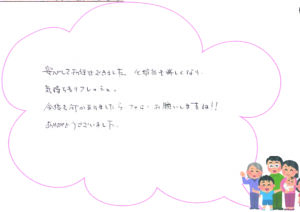 安心してお任せできました。化粧台も新しくなり
気持ちもリフレッシュ。
今後も何かありましたら お願いしますね!!
ありがとうございました。